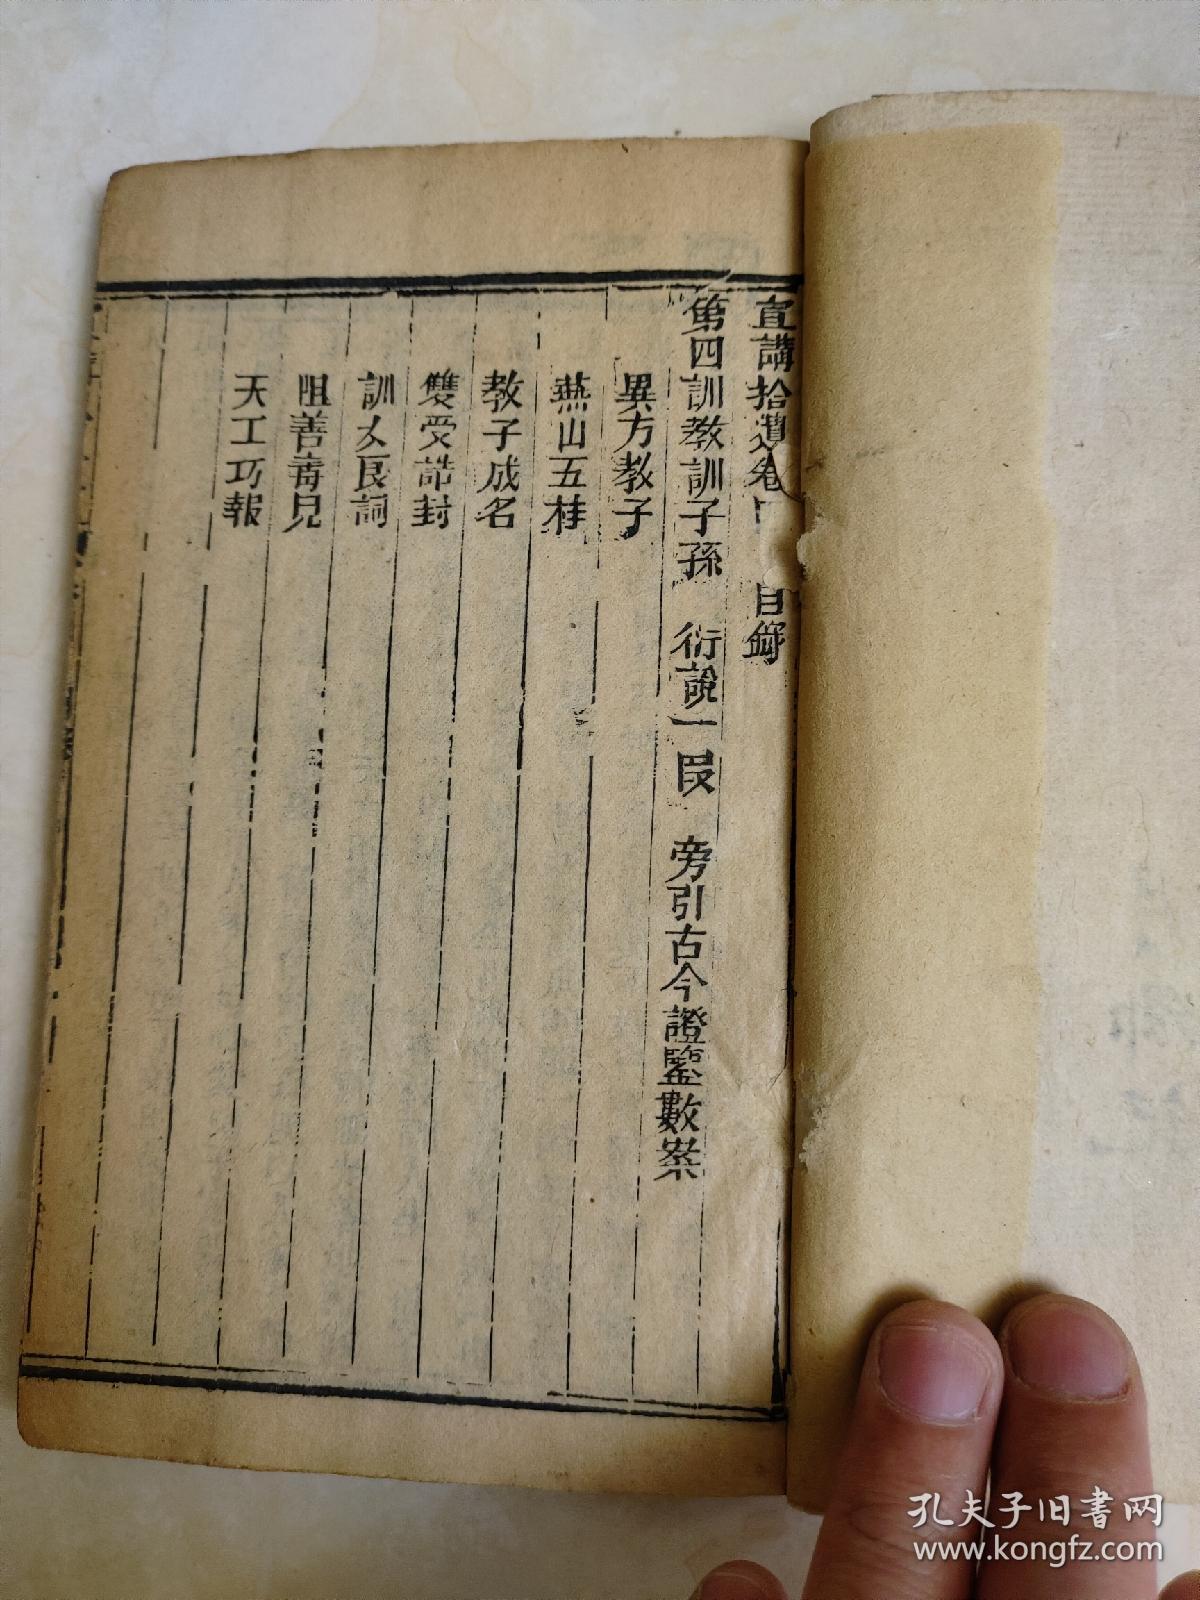 宣講拾遺卷四 目錄
第四訓教訓子孫 衍說一段 旁引古今證鑒數案
異方教子
燕山五桂
教子成名
雙受誥封
訓女良詞
阻善毒兒
天工巧報
孔夫子旧书网
www.kongfz.com